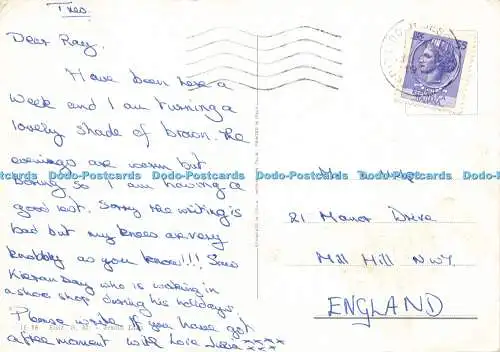 Tues.
Dear Ray,
Have been here a
week and I am turning a
lovely shade of brown. The
evenings are warm but
boring so I am having a
good rest. Sorry the writing is
bad but my knees are very
knobbly as you know!!! Saw
Kieran Day who is working in
a shoe shop during his holidays.
Please write if you have got
a free moment with Love xxxx
xxx
Mr
21 Manor Drive
Mill Hill NW7
ENGLAND
Dodo-Postcards Dodo-Postcards Dodo-Postcards Dodo-Postcards Dodo-Postcards